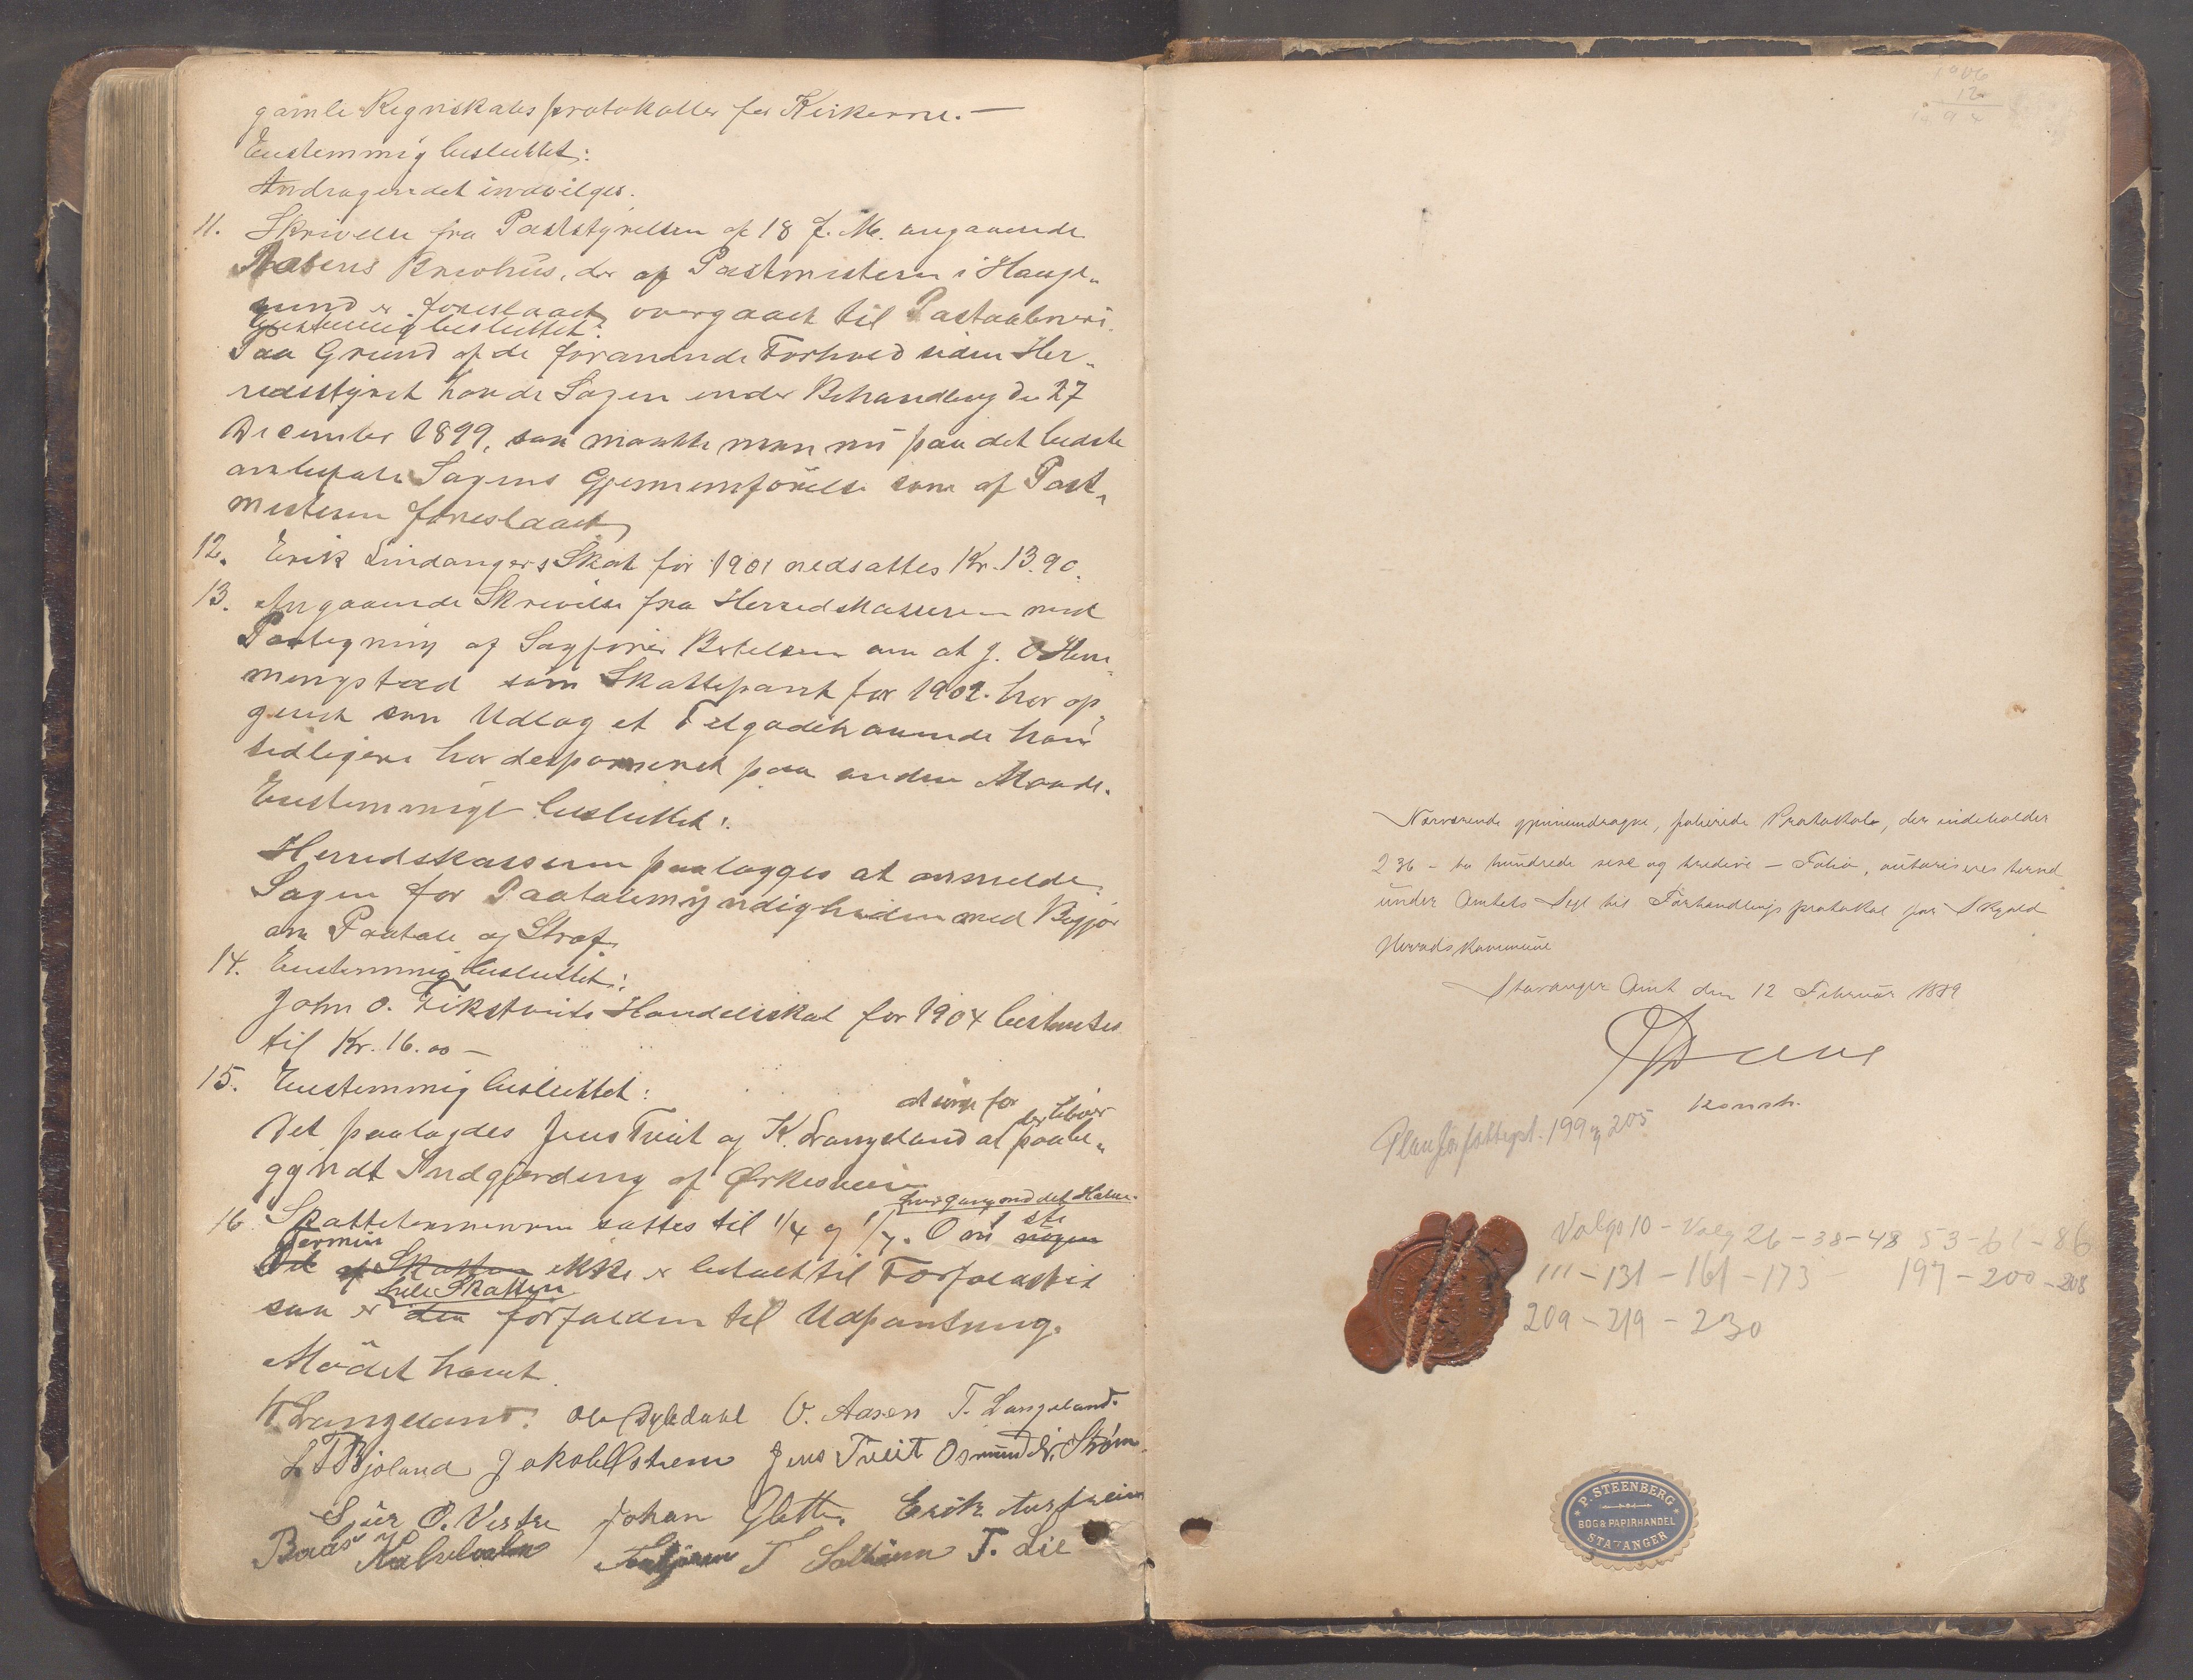 gamle Regnskabsprotokoller for Kirkerne. —
Enstemmig besluttet:
Andragendet indvilges.
11. Skrivelse fra Poststyrelsen af 18 f. M. angaaende
Brevhus, der af Postmesteren i Hauge-
sund er foreslaaet overgaaet til Postaabneri.
Enstemmig besluttet:
Paa Grund af de forandrede Forhold siden Her-
redsstyret havde Sagen under Behandling den 27
December 1899, saa maatte man nu paa det bedste
anbefale Sagens Gjennemførelse som af Post-
mesteren foreslaaet
12. Erik Lindangers Skat for 1901 nedsattes Kr. 13.90.
13. Angaaende Skrivelse fra Herredskasseren med
Paategning af Sagfører Bertelsen om at J. O Hem-
mingstad som Skattepant for 1902 har op-
givet som Udlæg et Tilgodehavende han
tidligere har desponeret paa anden Maade.
Enstemmigt besluttet:
Herredskasseren paalægges at anmelde
Sagen for Paatalemyndigheden med Begjær
om Paatale og Straf.
14. Enstemmig besluttet:
John O. Fikstveits Handelsskat for 1904 bestemtes
til Kr. 16.00 —
15. Enstemmig besluttet:
at sørge for
Det paalagdes Jens Tveit og K. Langeland at paabe-
gyndt Indgjerding af Ørkesveien
16. Skatteterminerne sattes til 1/4 og 1/7. Om 1ste nogen
Termin
Del af Skatten ikke er betalt til Forfaldstid
hele Skatten
saa er den forfalden til Udpantning.
Mödet hævet.
K Langeland. Ole Dybdahl O. Aasen T. Langeland.
L T Bjoland Jakob Østrem Jens Tveit Osmund N. Strøm
Sjur O. Vestre Johan Glette. Erik Austrheim
T Solheim T. Lie
1906
12
Nærværende gjennemdragne, folierede Protokol, der indeholder
236 — to hundrede sex og tredive — Folio, autoriseres herved
under Amtets Segl til Forhandlingsprotokol for Skjold
Herredskommune
Stavanger Amt den 12 Februar 1889
Konst.
199 og 205
Valgs 10 - Valg 26 - 38 - 48 53 - 61 - 86
111 - 131 - 161 - 173 - 197 - 200 - 208
209 - 219 - 230
P. STEENBERG
BOG & PAPIRHANDEL
STAVANGER